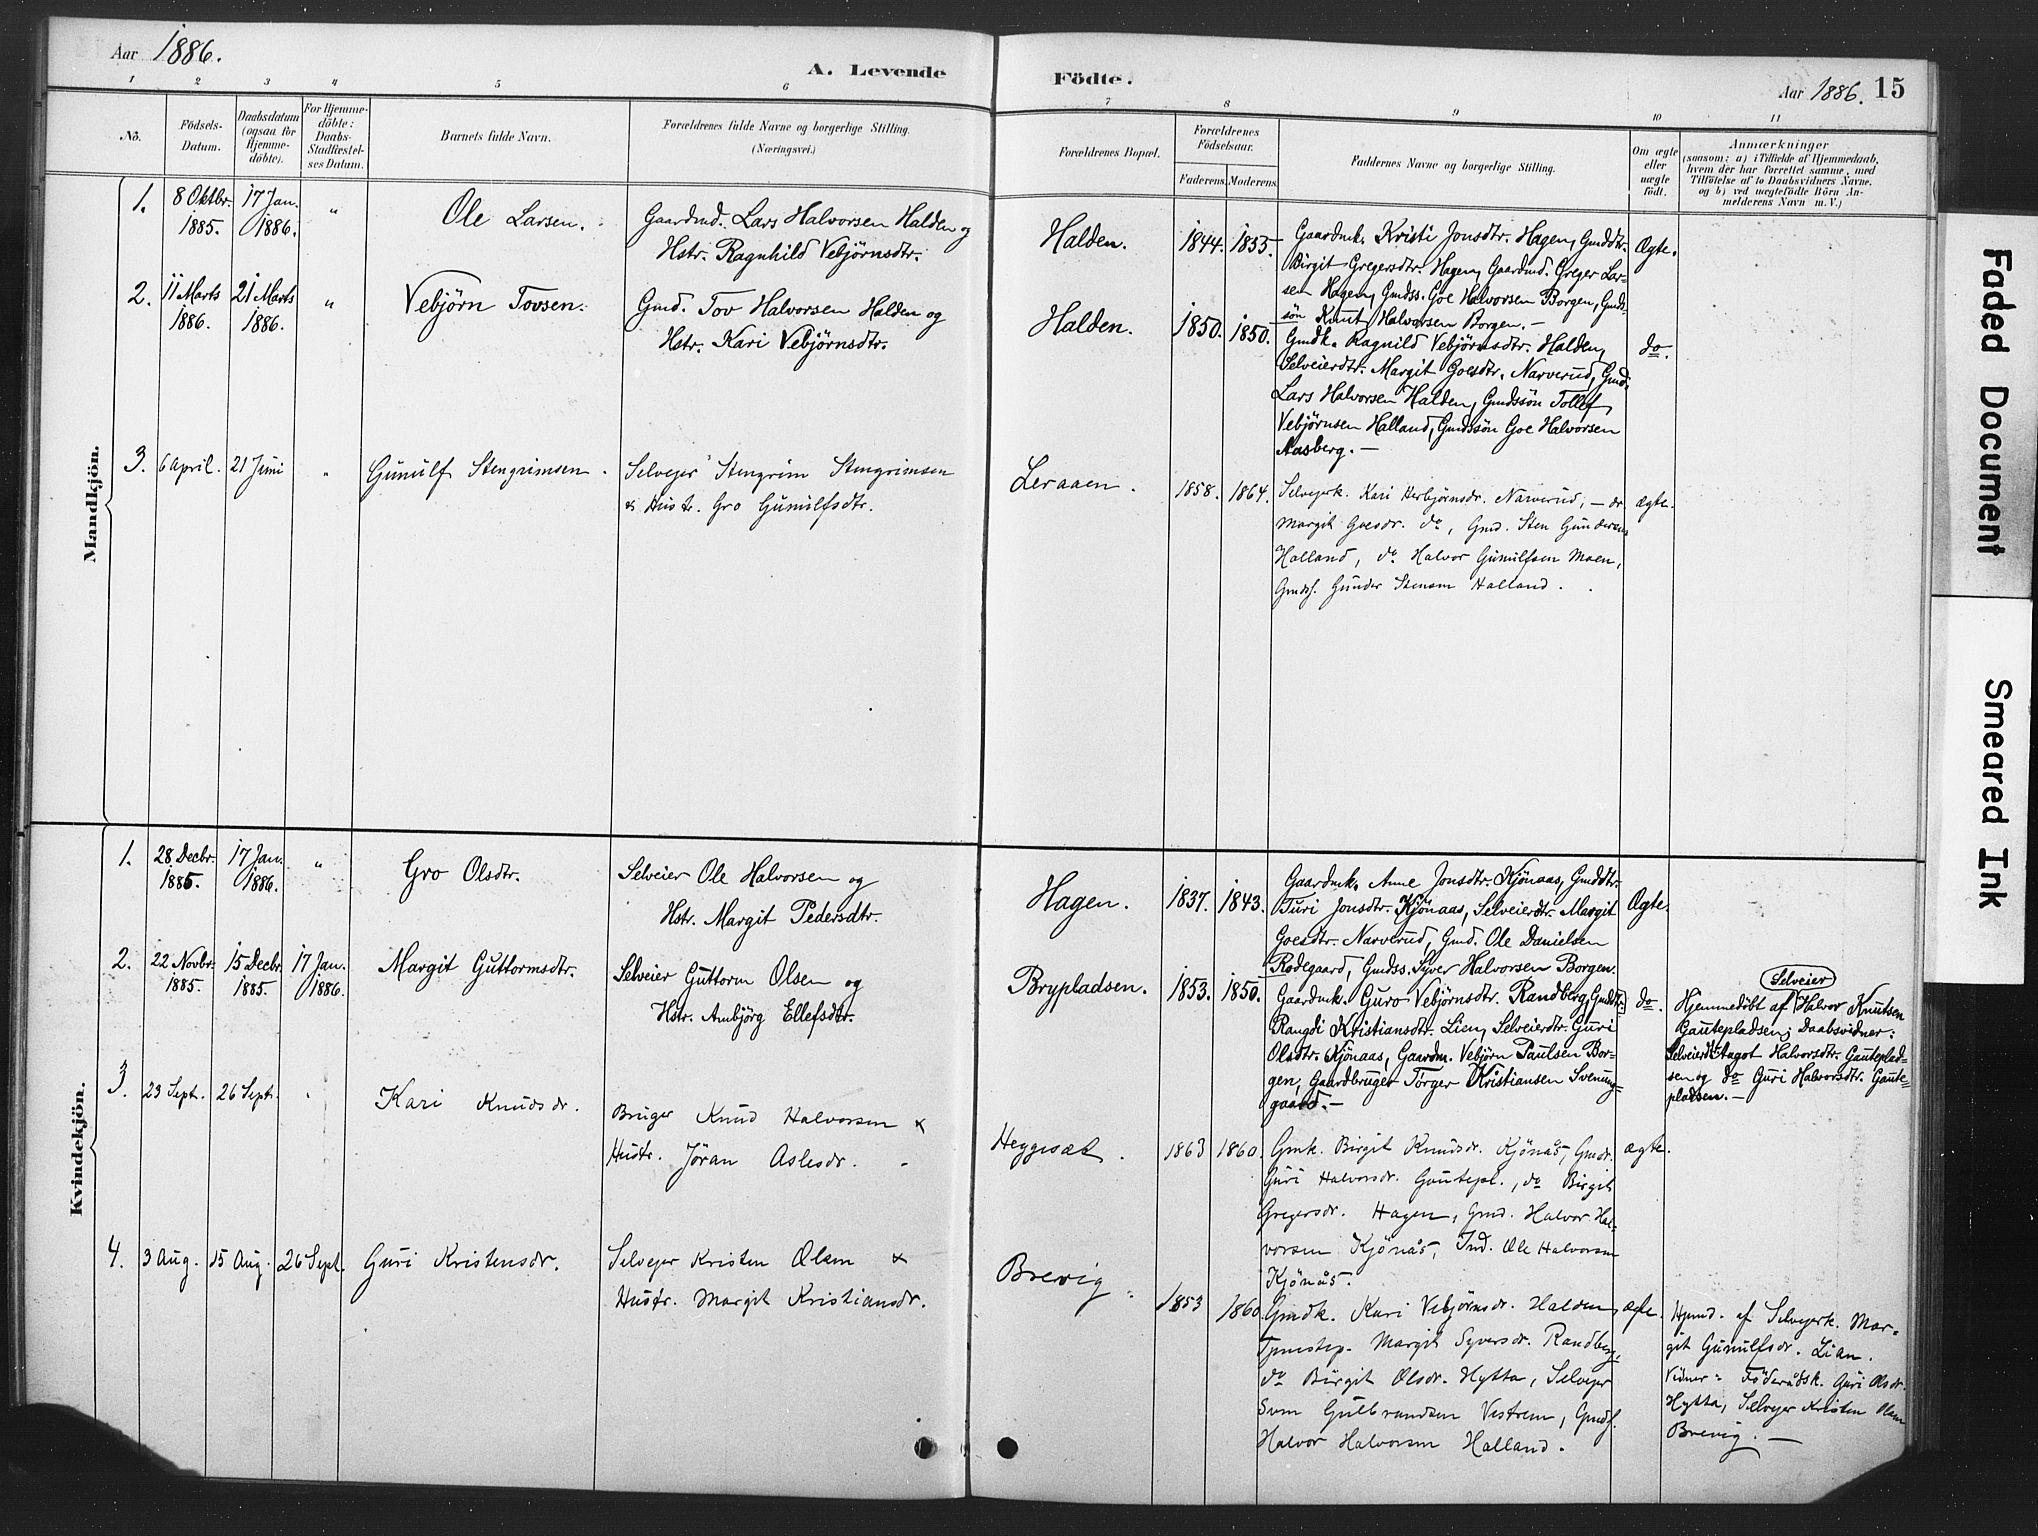 Aar 1886.
A. Levende Födte.
Aar 1886. 15
1 2 3 4 5 6 7 8 9 10 11
No.
Födsels-Datum.
Daabsdatum (ogsaa for Hjemme-döbte).
For Hjemme-döbte: Daabs-Stadfæstel-ses Datum.
Barnets fulde Navn.
Forældrenes fulde Navne og borgerlige Stilling. (Næringsvei.)
Forældrenes Bopæl.
Forældrenes Födselsaar.
Faderens. Moderens.
Faddernes Navne og borgerlige Stilling.
Om ægte eller uægte födt.
Anmærkninger
(saasom: a) i Tilfælde af Hjemmedaab,
hvem der har forrettet samme, med
Tilföielse af to Daabsvidners Navne.
og b) ved uægtefödte Börn An-
melderens Navn m. V.)
Mandkjön.
1. 8 Oktbr. 1885. 17 Jan. 1886. " Ole Larsen.
Gaardmd. Lars Halvorsen Halden og
Hstr. Ragnhild Vebjørnsdtr.
Halden. 1844. 1855.
Gaardmk. Kristi Jonsdtr. Hagen, Gmddtr.
Birgit Gregersdtr. Hagen, Gaardmd. Greger Lar-
sen Hagen, Gmdss. Goe Halvorsen Borgen, Gmd-
søn Knut Halvorsen Borgen. —
Ægte.
2. 11 Marts 1886. 21 Marts 1886. " Vebjörn Tovsen.
Gmd. Tov Halvorsen Halden og
Hstr. Kari Vebjörnsdtr.
Halden. 1850. 1850.
Gmdk. Ragnild Vebjørnsdtr. Halden,
Selveierdtr. Margit Goesdtr. Narverud, Gmd.
Lars Halvorsen Halden, Gmdssön Tollef
Vebjørnsen Halland, Gmdssön Goe Halvorsen
Aasberg. —
do.
3. 6 April. 21 Juni " Gunulf Stengrimsen.
Selvejer Stengrim Stengrimsen
& Hustr. Gro Gunulfsdtr.
Leraaen. 1858. 1864.
Selvejerk. Kari Herbjørnsdr. Narverud, — dr
Margit Goesdr. do, Gmd. Sten Gundersen
Halland, do Halvor Gunulfsen Moen,
Gmdsf. Gunder Stensen Halland.
ægte.
Kvindekjön.
1. 28 Decbr. 1885. 17 Jan. 1886. " Gro Olsdtr.
Selveier Ole Halvorsen og
Hstr. Margit Pedersdtr.
Hagen. 1837. 1843.
Gaardmk. Anne Jonsdtr. Kjönaas, Gmddtr.
Turi Jonsdtr. Kjönaas, Selveierdtr. Margit
Goesdtr. Narverud, Gmd. Ole Danielsen
Rodegaard, Gmdss. Syver Halvorsen Borgen.
Ægte.
2. 22 Novbr. 1885. 15 Decbr. 1885. 17 Jan. 1886. Margit Guttormsdtr.
Selveier Guttorm Olsen og
Hstr. Ambjörg Ellefsdtr.
Brypladsen. 1853. 1850.
Gaardmk. Guro Vebjörnsdtr. Randberg, Gmddtr.
Rangdi Kristiansdtr. Lien, Selveierdtr. Guri
Olsdtr. Kjönaas, Gaardm. Vebjörn Paulsen Bor-
gen, Gaardbruger Törger Kristiansen Svenung-
gaard. —
do.
Selveier
Hjemmedöbt af Halvor Knutsen
Gautepladsen; Daabsvidner:
Selveierdtr. Aagot Halvorsdtr. Gauteplad-
sen og do Guri Halvorsdtr. Gaute-
pladsen. —
3. 23 Sept. 26 Sept. " Kari Knudsdr.
Bruger Knud Halvorsen &
Hustr. Jöran Aslesdr.
Heggesæt. 1863 1860.
Gmk. Birgit Knudsdr. Kjönås, Gmdr.
Guri Halvorsdr. Gautepl., do Birgit
Gregersdr. Hagen, Gmd. Halvor Hal-
vorsen Kjönås, Ind. Ole Halvorsen
Kjönås.
ægte.
4. 3 Aug. 15 Aug. 26 Sept. Guri Kristensdr.
Selvejer Kristen Olsen &
Hustr. Margit Kristiansdr.
Brevig. 1853 1860
Gmdk. Kari Vebjörnsdr. Halden,
Tjenestep. Margit Syversdr. Randberg,
do Birgit Olsdr. Hytta, Selvejer
Sven Gulbrandsen Vestrem, Gmdsf.
Halvor Halvorsen Halland.
ægte.
Hjemd. af Selvejerk. Mar-
git Gunulfsdr. Lian.
Vidner: Föderådsk. Guri Olsdr.
Hytta, Selvejer Kristen Olsen
Brevig. —
Faded Document
Smeared Ink